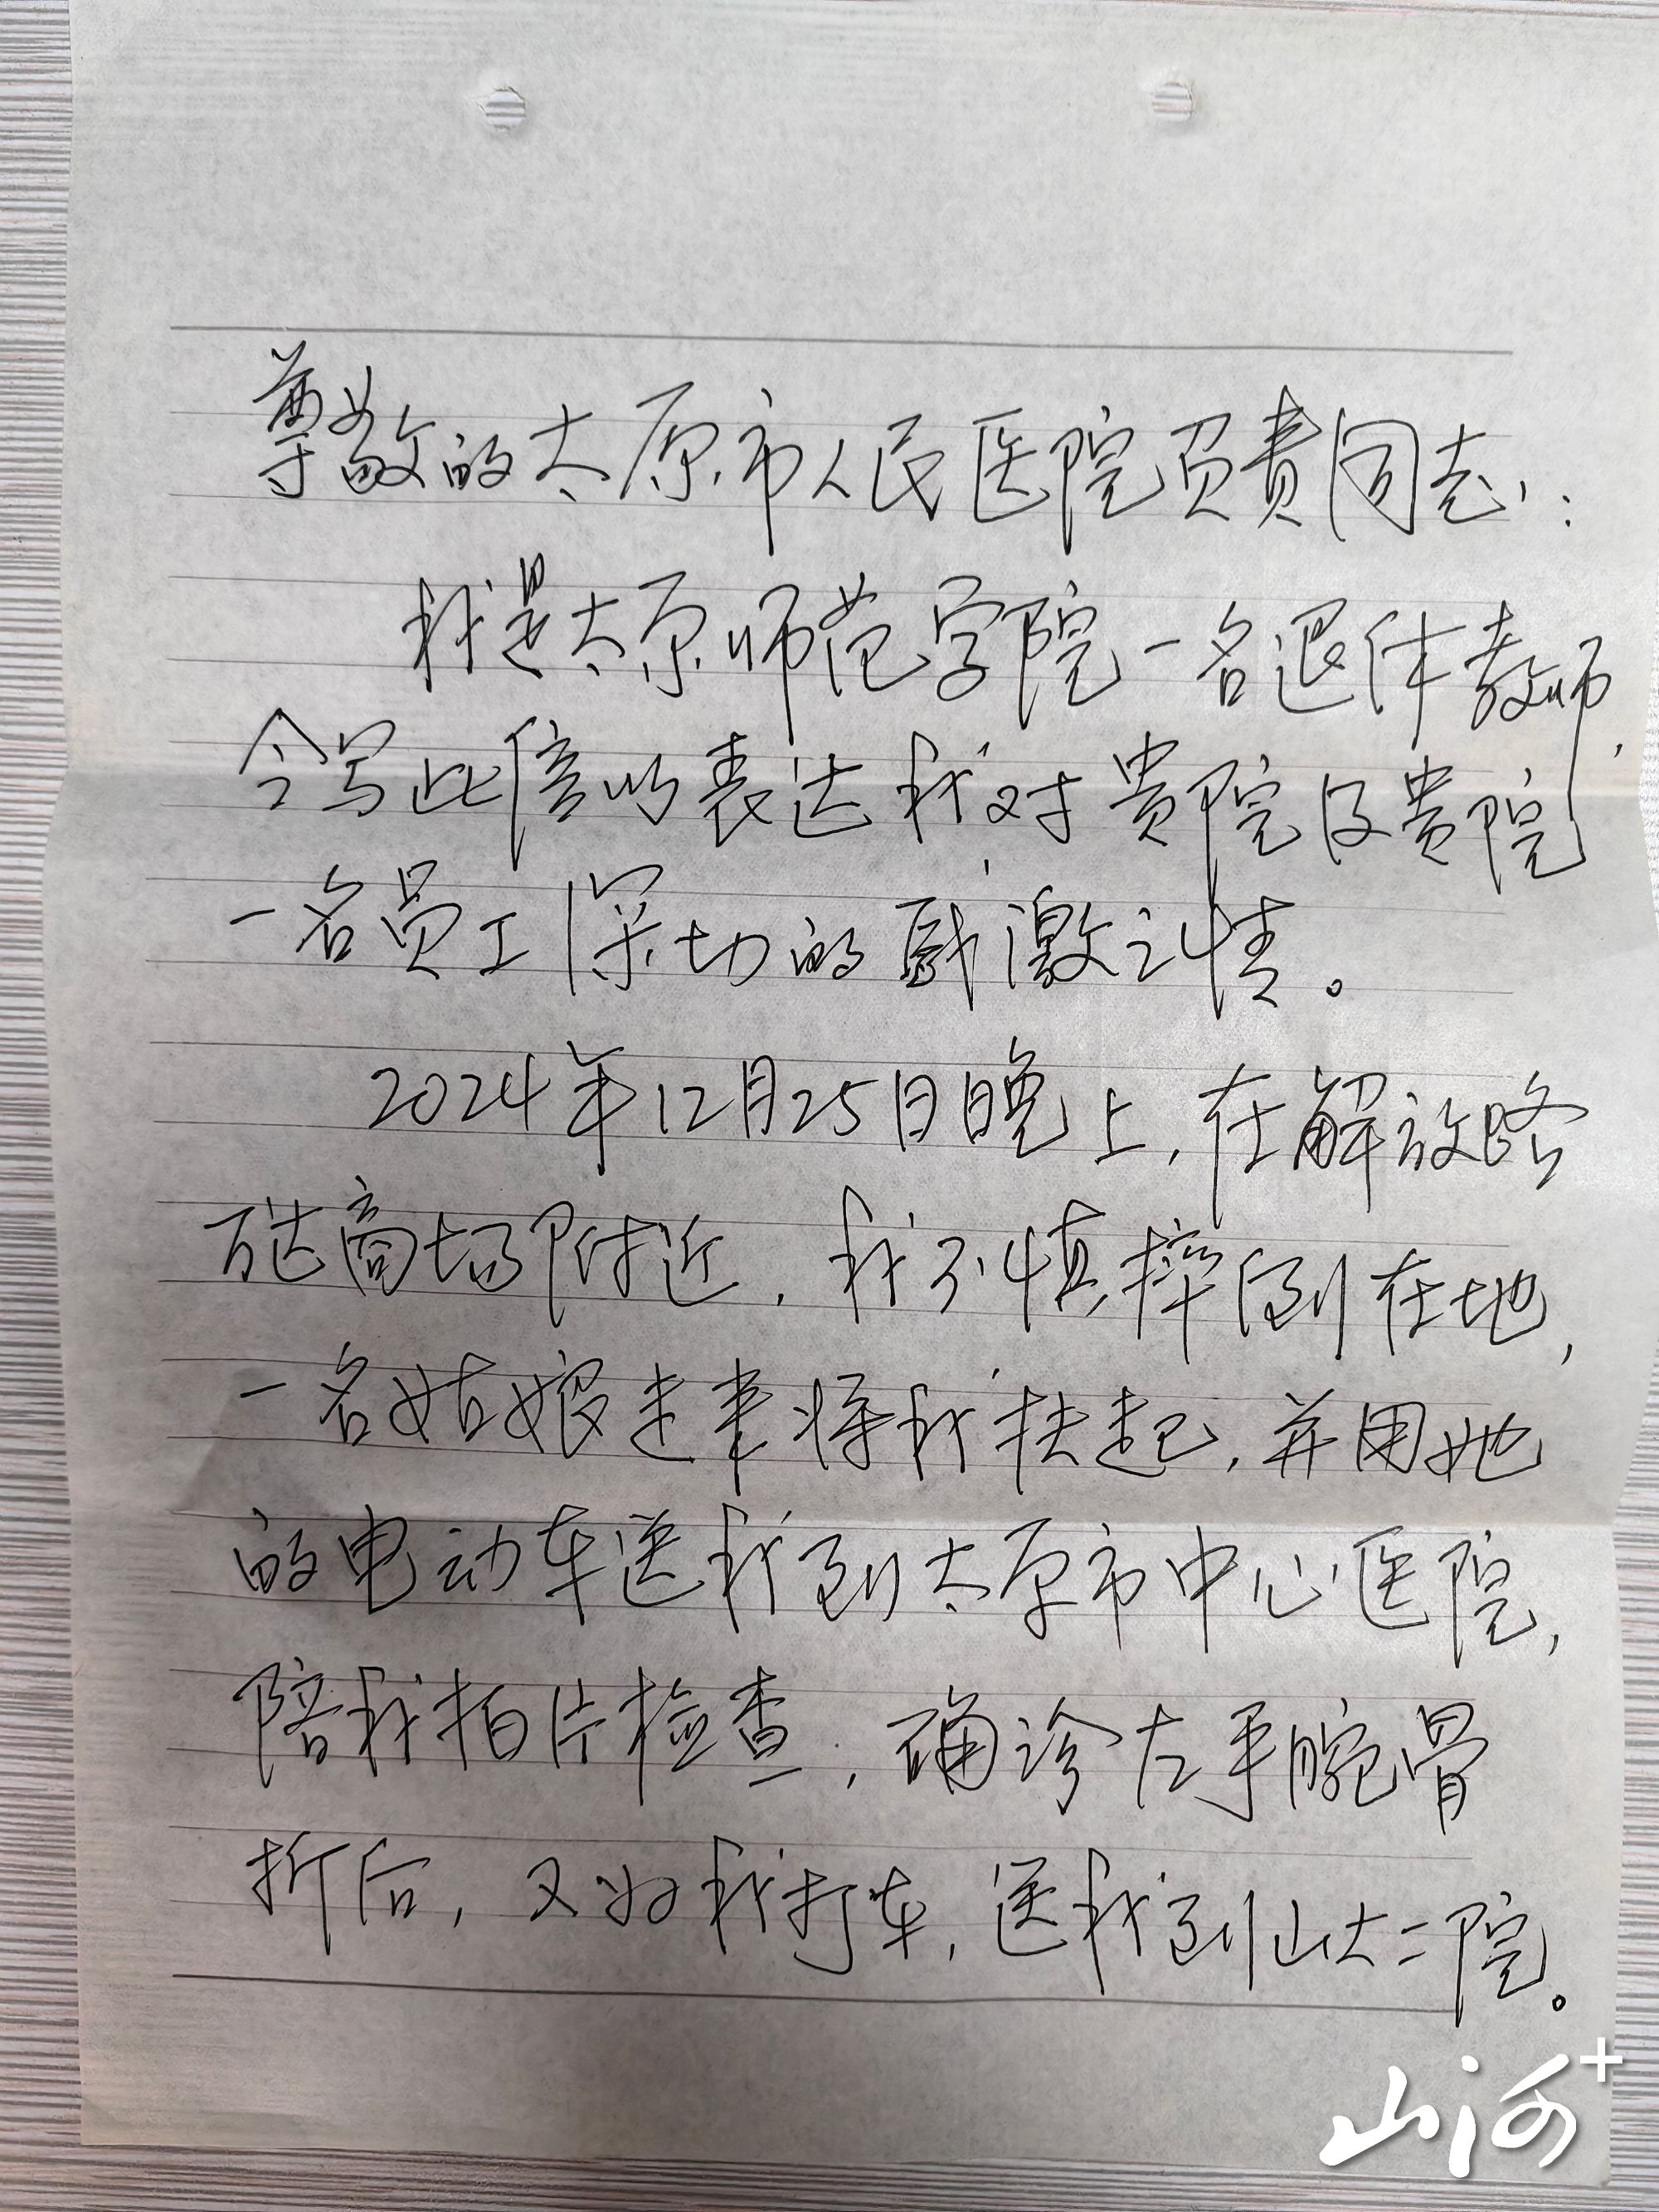 尊敬的太原市人民医院负责同志：
我是太原师范学院一名退休教师，
今写此信以表达我对贵院及贵院
一名员工深切的感激之情。
2024年12月25日晚上，在解放路
万达商场附近，我不慎摔倒在地，
一名姑娘走来将我扶起，并用她
的电动车送我到太原市中心医院，
陪我拍片检查，确诊左手腕骨
折后，又如我打车，送我到山大二院。
山河+